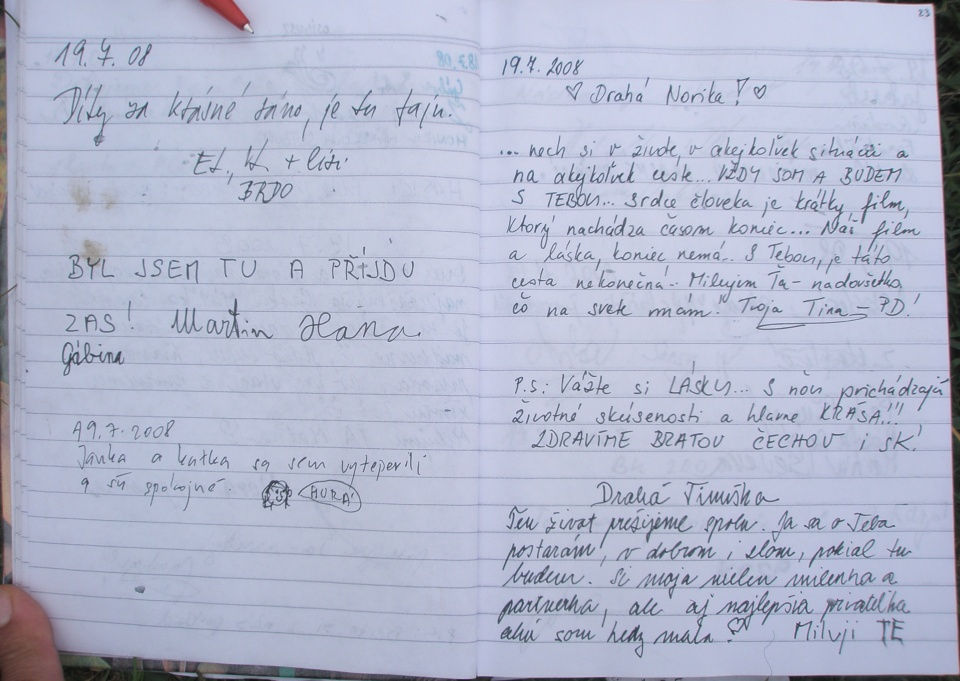 19.7.08
Díky za krásné ráno, je tu fajn.
BRDO
BYL JSEM TU A PŘIJDU
ZAS! Martin Hana
Gábina
19.7.2008
Janka a katka sa sem vyteperili
a sú spokojné.
HURÁ!
23
19.7.2008
♡ Drahá Norika! ♡
... nech si v živote, v akejkoľvek situácii a
na akejkoľvek ceste... VŽDY SOM A BUDEM
S TEBOU... Srdce človeka je krátky film,
ktorý nachádza časom koniec... Náš film
a láska, koniec nemá.. S Tebou, je táto
cesta nekonečná.. Milujem Ťa - nadovšetko,
čo na svete mám! Tvoja Tina - PD!
P.S.: Vážte si LÁSKU... S ňou prichádzajú
životné skúsenosti a hlavne KRÁSA!!!
ZDRAVÍME BRATOV ČECHOV i SK!
Drahá Tinuška
Ten život prežijeme spolu. Ja sa o Teba
postarám, v dobrom i zlom, pokial tu
budem. Si moja nielen milenka a
partnerka, ale aj najlepšia priatelka
akú som kedy mala ♡ Miluji TE